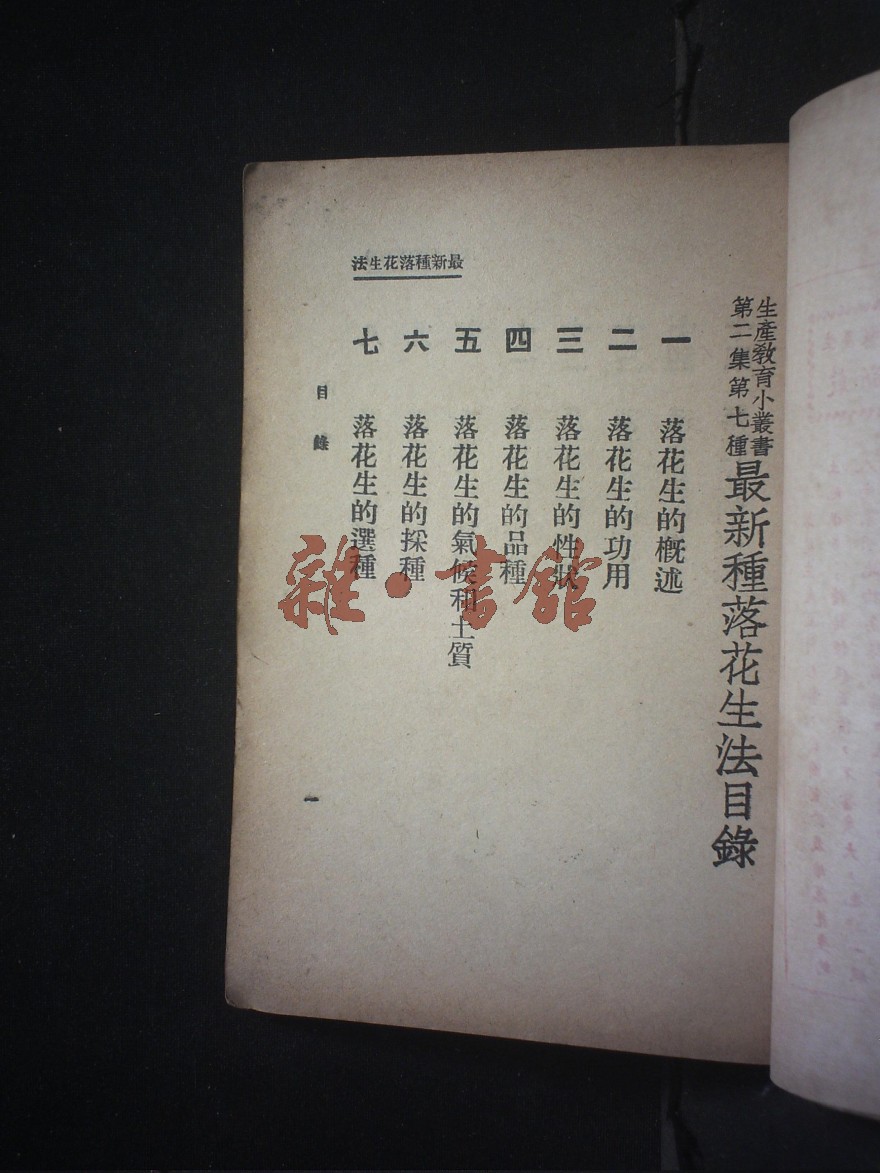 生產教育小叢書
第二集第七種
最新種落花生法目錄
一 落花生的概述
二 落花生的功用
三 落花生的性狀
四 落花生的品種
五 落花生的氣候和土質
六 落花生的採種
七 落花生的選種
最新種落花生法
目錄
一
雜·書館